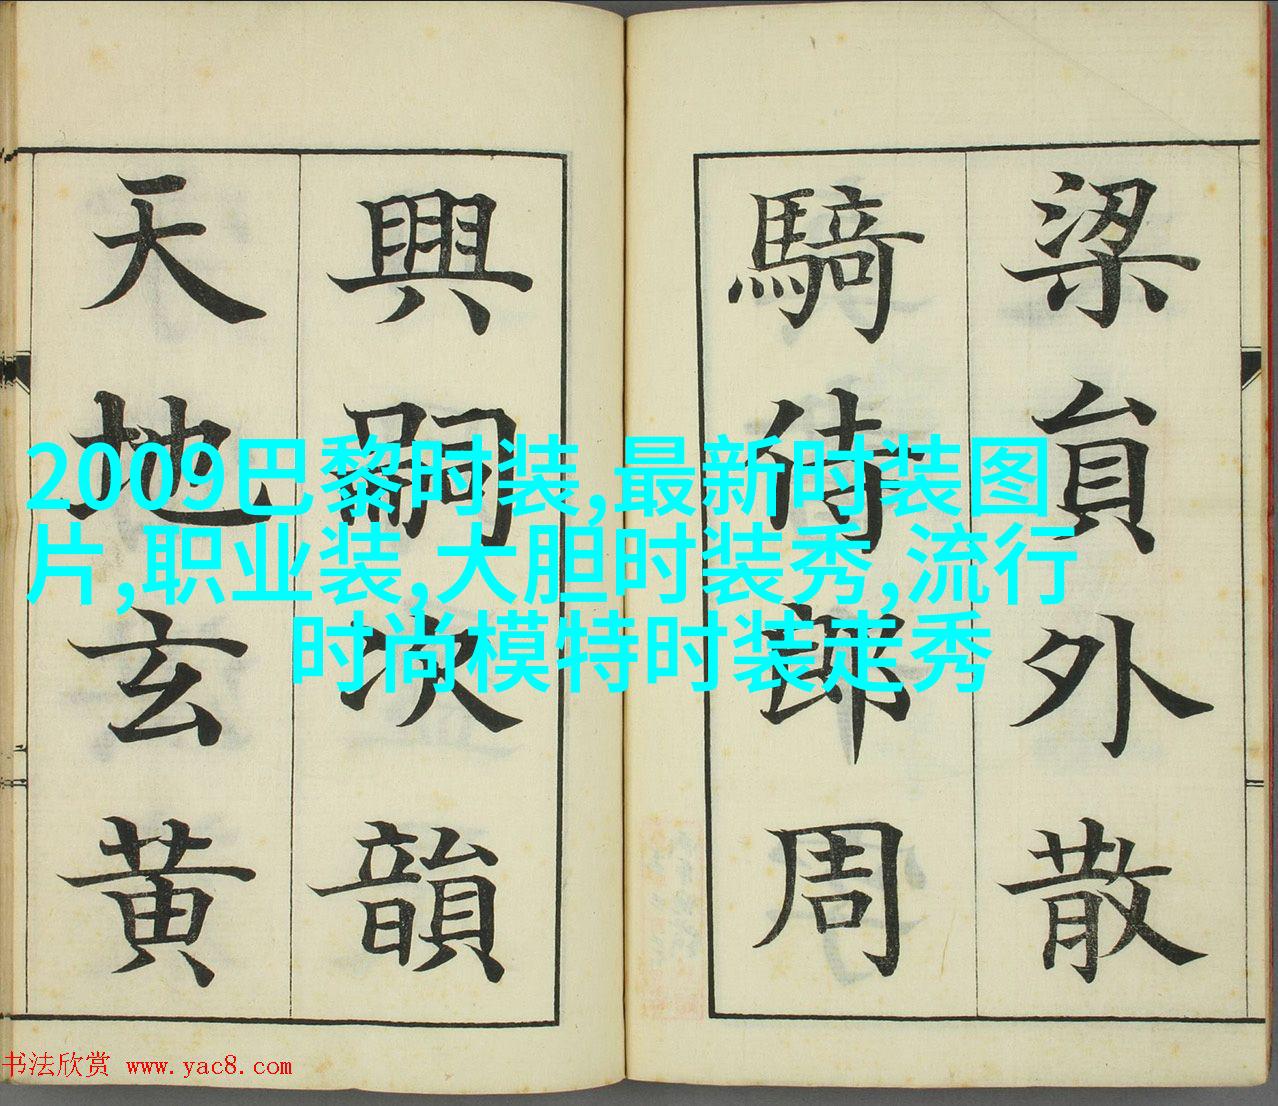 梁貟外散
騎侍郎周
興嗣次韻
天地玄黄
2009巴黎时装,最新时装图
片,职业装,大胆时装秀,流行
时尚模特时装走秀
书法欣赏 www.yac8.com